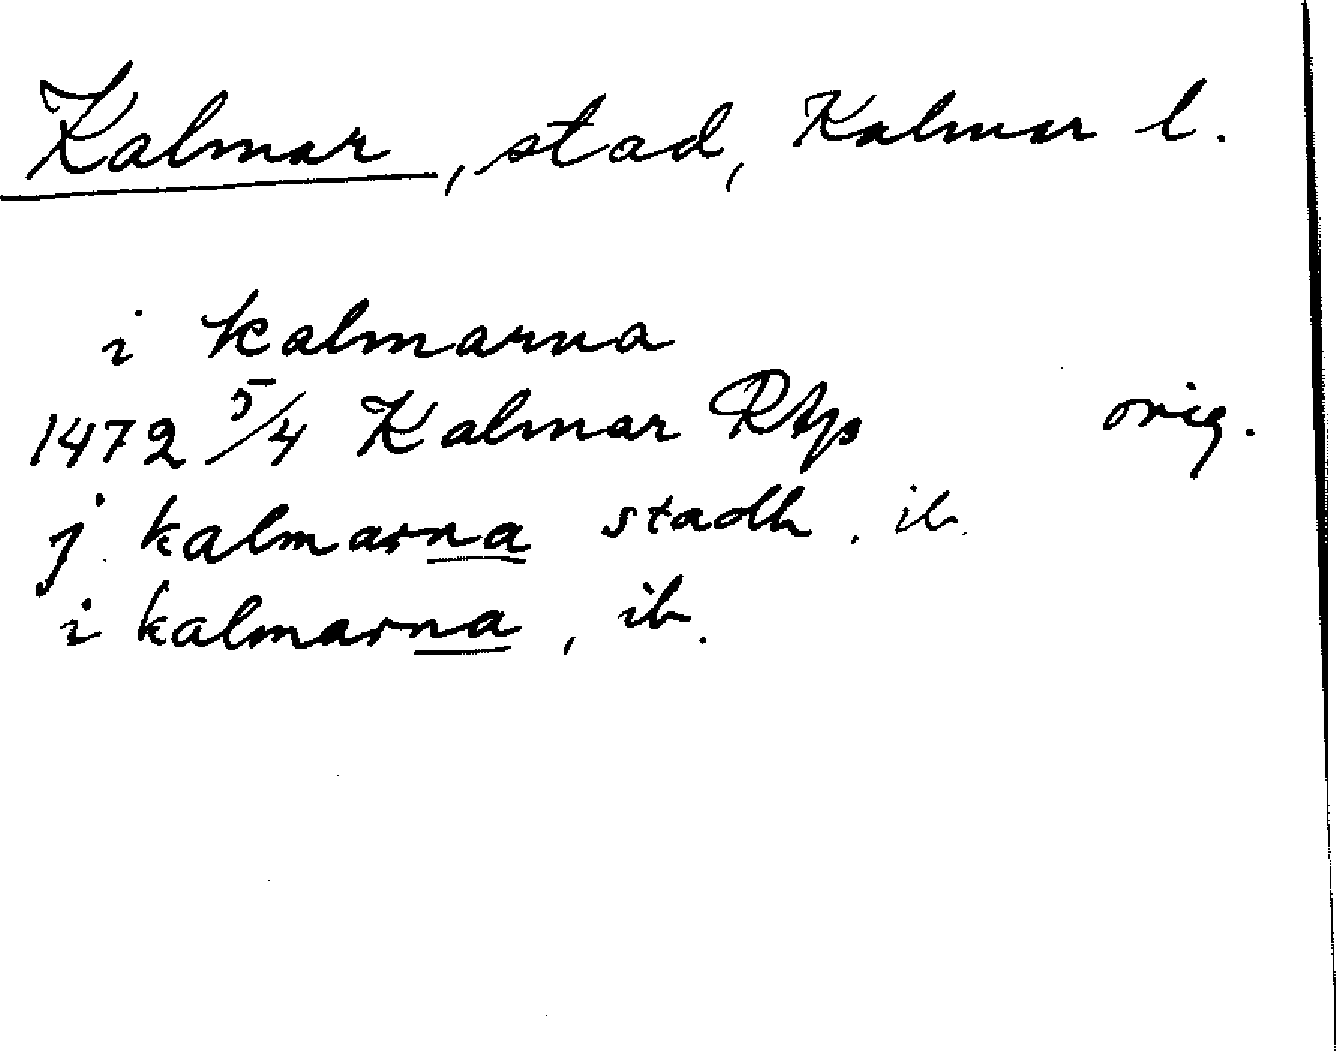 Kalmar, stad, Kalmar l.
i kalmarna
1472 5/4 Kalmar RAp orig.
j kalmarna stadh, ib.
i kalmarna, ib.